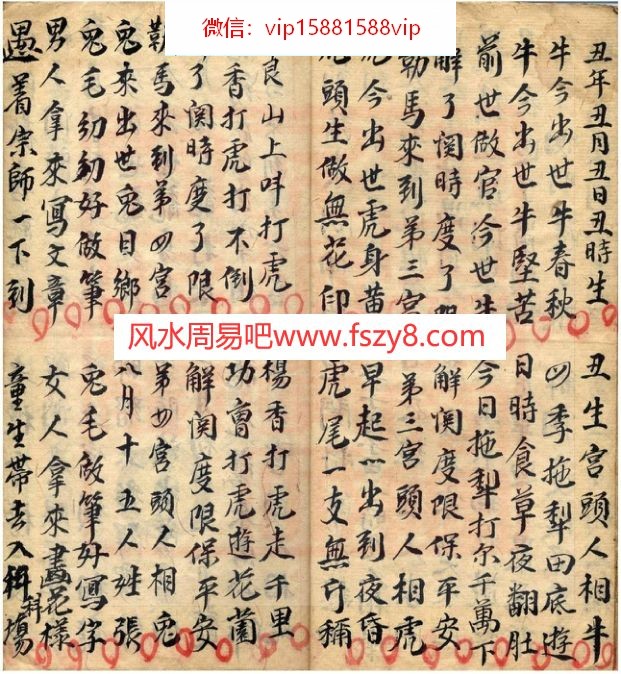 微信：vip15881588vip
丑年丑月丑日丑時生 丑生宮頭人相牛
牛今出世牛春秋 四季拖犁田底遊
牛今出世牛堅苦 日時食草夜翻肚
前世做官今世牛 今日拖犁打尔千萬下
解了関時度了 解関度限保平安
勒馬來到第三宮 第三宮頭人相虎
今出世虎身黃 早起出到夜昏
頭生做無花印 虎尾一支無斤稱
良山上叫打虎 楊香打虎走千里
香打虎打不倒 功曹打虎遊花園
了関時度了限 解関度限保平安
勒馬來到第四宮 第四宮頭人相兔
兔來出世兔目鄉 八月十五人姓張
兔毛幼幼好做筆 兔毛做筆好寫字
男人拿來寫文章 女人拿來畫花樣
遇着宗師一下到 童生帶去入科場
风水周易吧www.fszy8.com